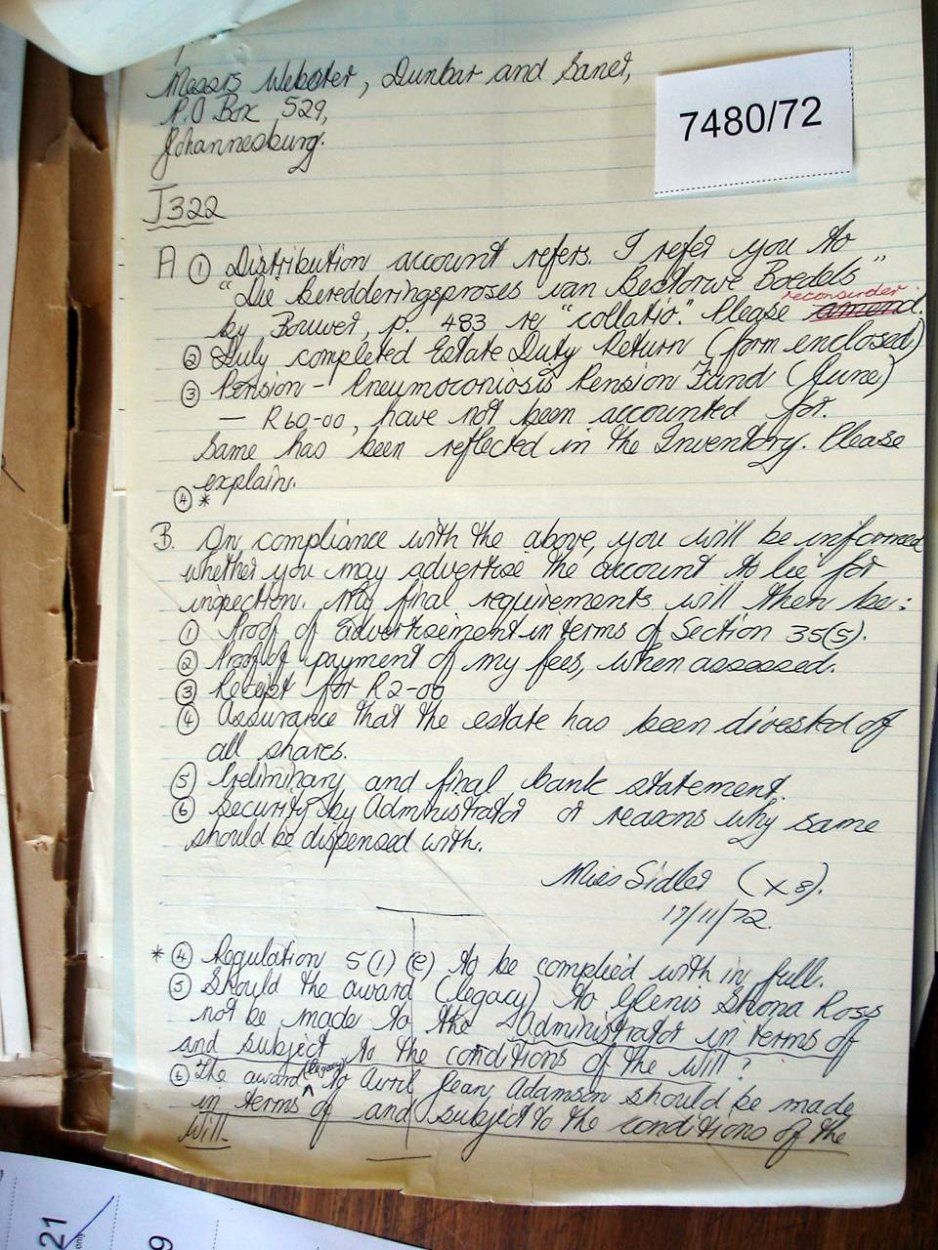 Messrs Webster, Dunbar and Lanet,
P.O Box 529,
Johannesburg.
7480/72
J322
A ① Distribution account refers. I refer you to
"Die beredderingsproses van Bestorwe Boedels"
reconsider
by Bouwer, p. 483 re "collatio." Please amend.
② Duly completed Estate Duty Return (form enclosed)
③ Pension - Pneumoconiosis Pension Fund (June)
— R60-00, have not been accounted for.
Same has been reflected in the Inventory. Please
explain.
④ *
B. On compliance with the above, you will be informed
whether you may advertise the account to lie for
inspection. My final requirements will then be:
① Proof of advertisement in terms of Section 35(5).
② Proof of payment of my fees, when assessed.
③ Receipt for R2-00
④ Assurance that the estate has been divested of
all shares.
⑤ Preliminary and final bank statement.
⑥ Security by Administrator or reasons why same
should be dispensed with.
Miss Sidler (x8).
17/11/72.
* ④ Regulation 5(1)(e) to be complied with in full.
⑤ Should the award (legacy) to Glenis Shona Ross
not be made to the Administrator in terms of
and subject to the conditions of the will?
⑥ The award (legacy) to Avril Jean Adamson should be made
in terms of and subject to the conditions of the
will.
21
9